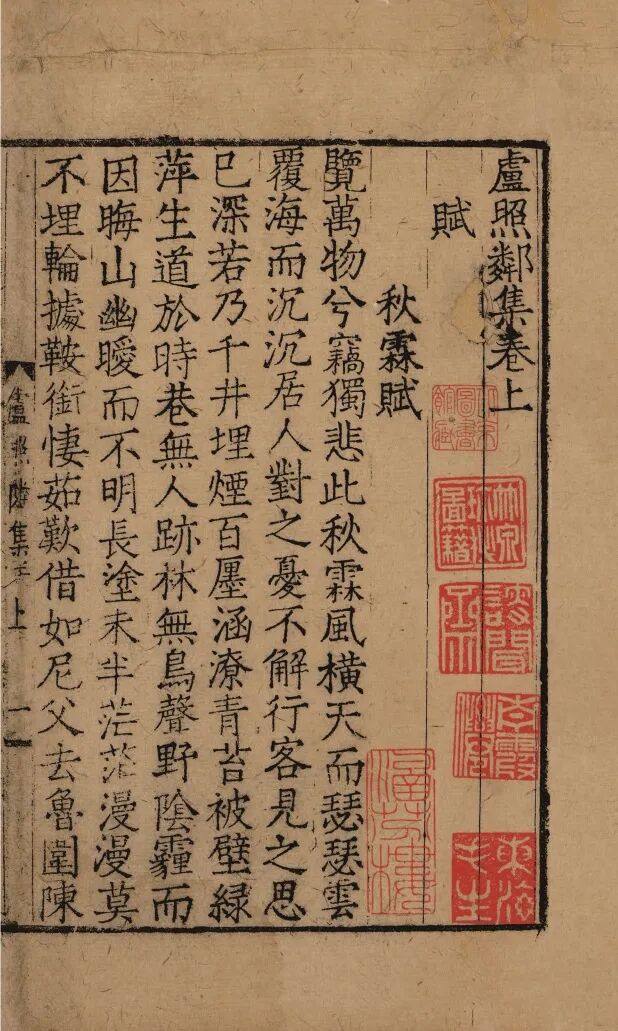 盧照鄰集卷上
賦
秋霖賦
覽萬物兮竊獨悲此秋霖風橫天而瑟瑟雲
覆海而沉沉居人對之憂不解行客見之思
已深若乃千井埋煙百廛涵潦青苔被壁綠
萍生道於時巷無人跡林無鳥聲野陰霾而
因晦山幽曖而不明長塗未半茫茫漫漫莫
不埋輪據鞍銜悽茹歎借如尼父去魯圍陳
盧照鄰集卷上
一
東海